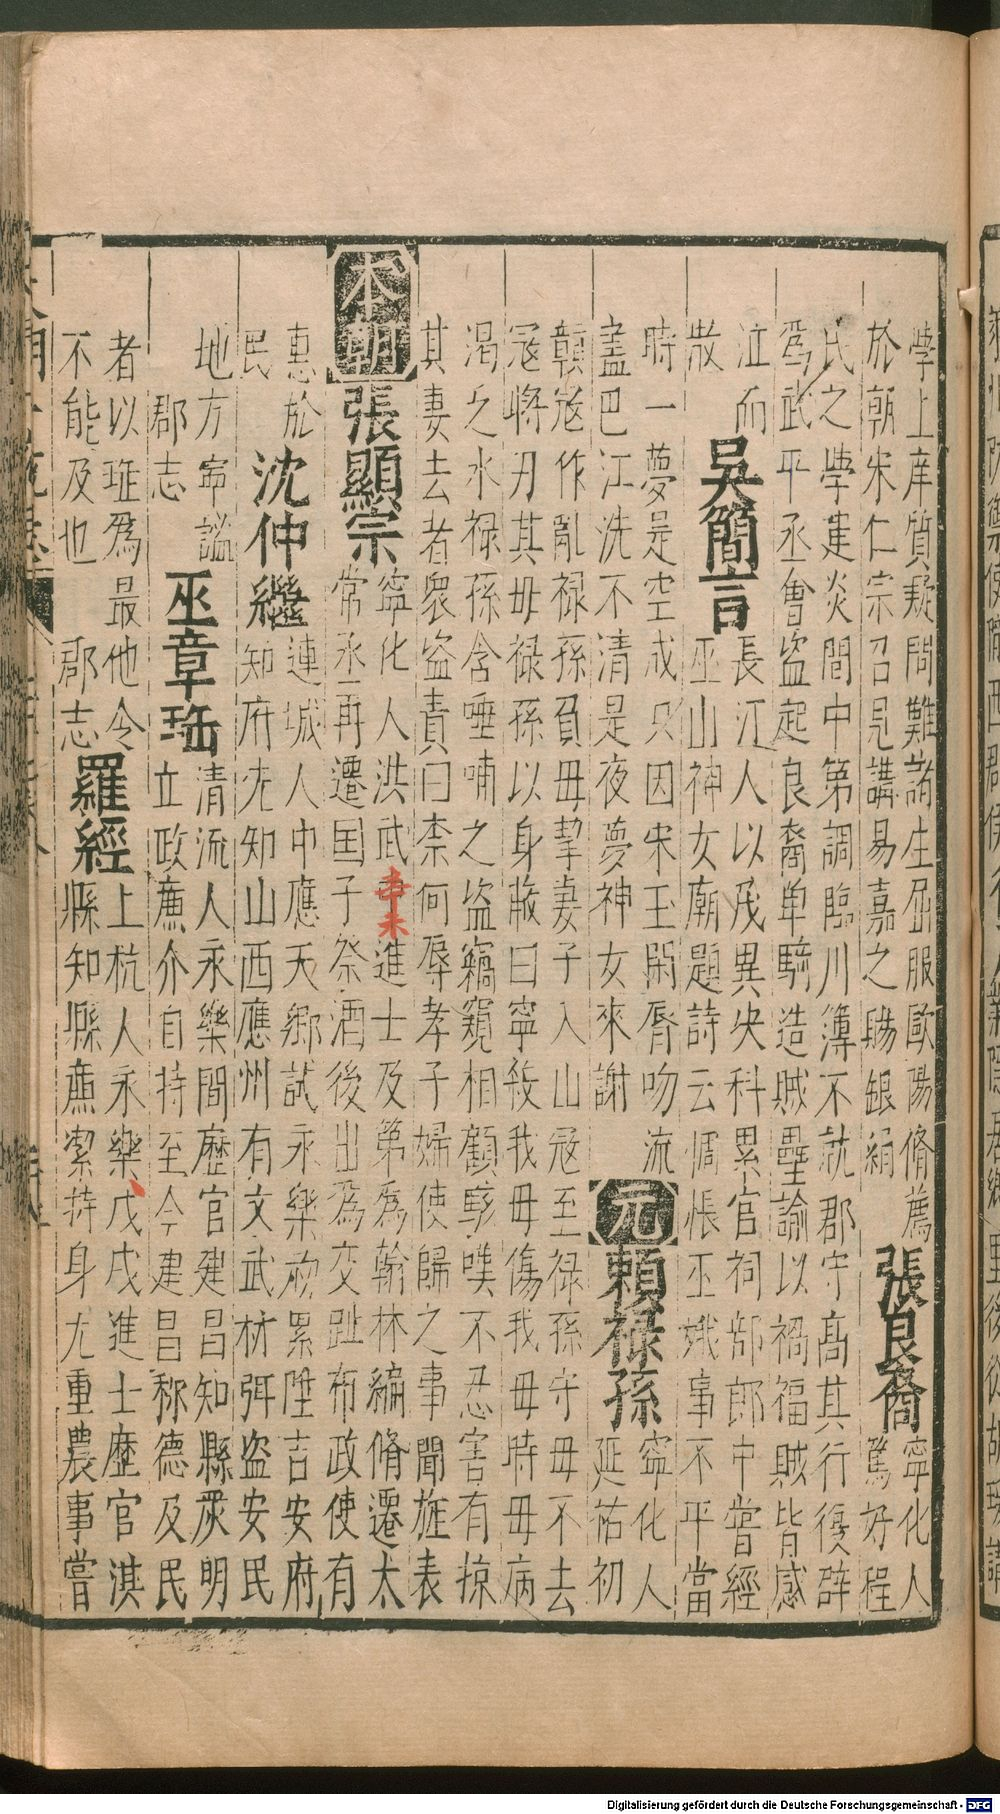 學上庠質疑問難諸生屈服歐陽脩薦
於朝宋仁宗召見講易嘉之賜銀絹
張良裔
寧化人
篤好程
氏之學建炎間中第調臨川簿不就郡守高其行復辟
爲武平丞會盜起良裔单騎造賊壘諭以禍福賊皆感
泣而
散
吳簡言
長江人以茂異决科累官祠部郎中嘗經
巫山神女廟題詩云惆悵巫娥事不平當
時一夢是空成只因宋玉閑脣吻流
盡巴江洗不清是夜夢神女來謝
元
賴祿孫
寧化人
延祐初
贑寇作亂禄孫負母挈妻子入山寇至禄孫守母不去
寇將刃其母禄孫以身蔽曰寧殺我毋傷我母時母病
渴乏水禄孫含唾哺之盜竊窺相顧駭嘆不忍害有掠
其妻去者衆盜責曰柰何辱孝子婦使歸之事聞旌表
本朝
張顯宗
寧化人洪武
辛未
進士及第爲翰林編脩遷太
常丞再遷囯子祭酒後出爲交趾布政使有
惠於
民
沈仲繼
連城人中應天鄉試永樂初累陞吉安府
知府先知山西應州有文武材弭盜安民
地方寧謐
郡志
巫章珤
清流人永樂間歷官建昌知縣厥明
立政亷介自持至今建昌称德及民
者以珤爲最他令
不能及也
郡志
羅經
上杭人永樂戊戌進士歷官淇
縣知縣亷潔持身尤重農事嘗
Digitalisierung gefördert durch die Deutsche Forschungsgemeinschaft - DFG